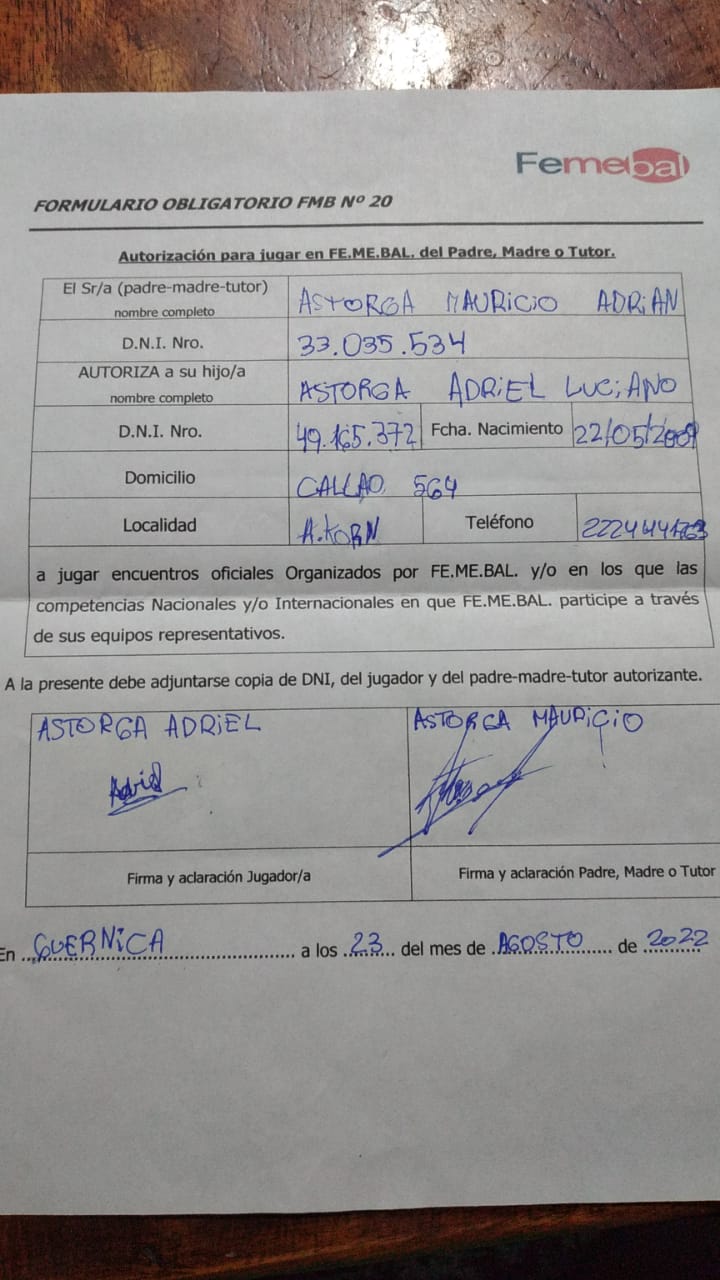 Femebal
FORMULARIO OBLIGATORIO FMB Nº 20
Autorización para jugar en FE.ME.BAL. del Padre, Madre o Tutor.
El Sr/a (padre-madre-tutor)
nombre completo
ASTORGA MAURICIO ADRIAN
D.N.I. Nro.
33.035.534
AUTORIZA a su hijo/a
nombre completo
ASTORGA ADRIEL LUCIANO
D.N.I. Nro.
49.165.372
Fcha. Nacimiento
22/05/2009
Domicilio
CALLAO 564
Localidad
A.KORN
Teléfono
a jugar encuentros oficiales Organizados por FE.ME.BAL. y/o en los que las
competencias Nacionales y/o Internacionales en que FE.ME.BAL. participe a través
de sus equipos representativos.
A la presente debe adjuntarse copia de DNI, del jugador y del padre-madre-tutor autorizante.
ASTORGA ADRIEL
ASTORGA MAURICIO
Firma y aclaración Jugador/a
Firma y aclaración Padre, Madre o Tutor
En GUERNICA a los 23 del mes de AGOSTO de 2022